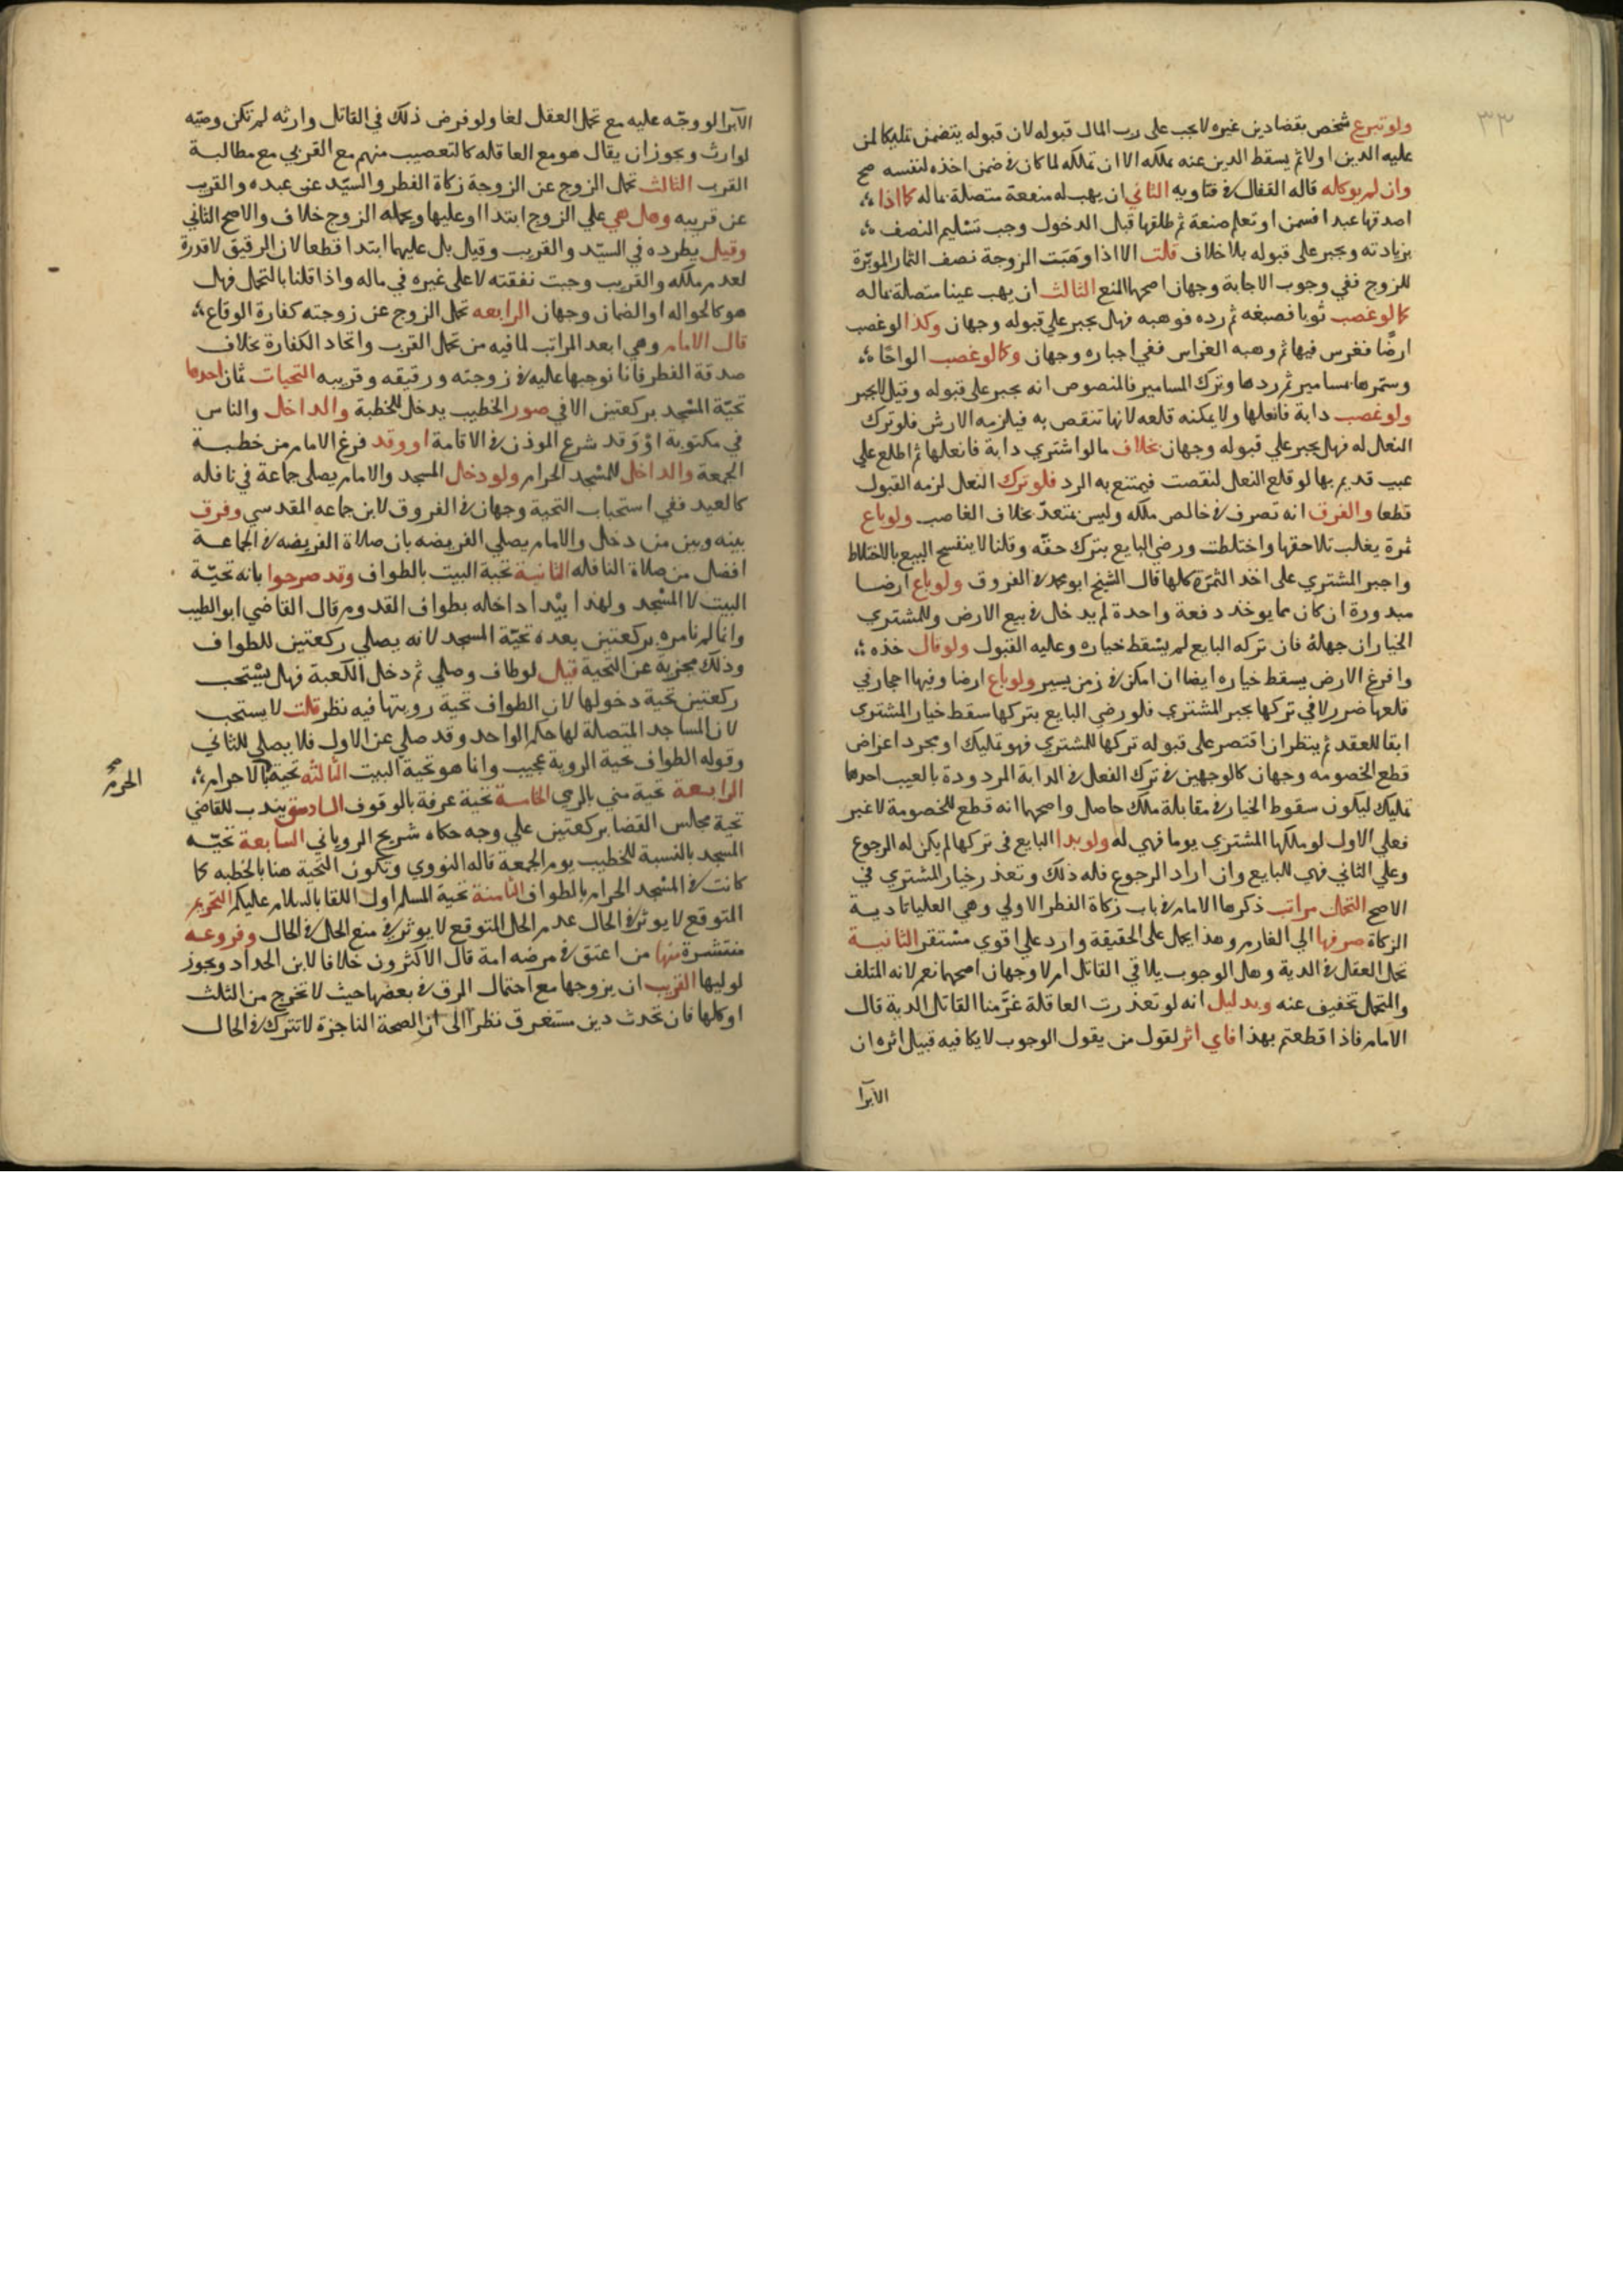 ٣٣
ولو تبرع شخص بقضا دين غيره لا يجب على رب المال قبوله لان قبوله يتضمن تمليكا لمن
عليه الدين اولا ثم يسقط الدين عنه بملكه الا ان تملكه لما كان في ضمن اخذه لنفسه صح
وان لم يوكله قاله القفال في فتاويه الثاني ان يهب له منفعة متصلة بماله كما اذا
اصدقها عبدا فسمن او تعلم صنعة ثم طلقها قبل الدخول وجب تسليم النصف
بزيادته ويجبر على قبوله بلا خلاف قلت الا اذا وهبت الزوجة نصف الثمار الموبرة
للزوج ففي وجوب الاجابة وجهان اصحهما المنع الثالث ان يهب عينا متصلة بماله
كما لو غصب ثوبا فصبغه ثم رده فوهبه فهل يجبر على قبوله وجهان وكذا لو غصب
ارضا فغرس فيها ثم وهبه الغراس ففي اجباره وجهان وكما لو غصب الواحا
وسمرها بمسامير ثم ردها وترك المسامير فالمنصوص انه يجبر على قبوله وقيل لا يجبر
ولو غصب دابة فانعلها ولا يمكنه قلعه لانها تنقص به فيلزمه الارش فلو ترك
النعل له فهل يجبر علي قبوله وجهان بخلاف ما لو اشتري دابة فانعلها ثم اطلع علي
عيب قديم بها لو قلع النعل لنقصت فيمتنع به الرد فلو ترك النعل لزمه القبول
قطعا والفرق انه تصرف في خالص ملكه وليس بمتعد بخلاف الغاصب ولو باع
ثمرة يغلب تلاحقها واختلطت ورضي البايع بترك حقه وقلنا لا ينفسخ البيع بالاختلاط
واجبر المشتري على اخذ الثمرة كلها قال الشيخ ابو محمد في الفروق ولو باع ارضا
مبدورة ان كان مما يوخذ دفعة واحدة لم يدخل في بيع الارض وللمشتري
الخيار ان جهله فان تركه البايع لم يسقط خياره وعليه القبول ولو قال خذه
وافرغ الارض يسقط خياره ايضا ان امكن في زمن يسير ولو باع ارضا وفيها احجار في
قلعها ضرر لا في تركها يجبر المشتري فلو رضي البايع بتركها سقط خيار المشتري
ابقا للعقد ثم ينظر ان اقتصر على قبوله تركها للمشتري فهو تمليك او مجرد اعراض
قطع الخصومه وجهان كالوجهين في ترك الفعل في الدابة المردودة بالعيب احدها
تمليك ليكون سقوط الخيار في مقابلة ملك حاصل واصحهما انه قطع للخصومة لا غير
فعلي الاول لو ملكها المشتري يوما فهي له ولو بدا البايع في تركها لم يكن له الرجوع
وعلي الثاني فهي للبايع وان اراد الرجوع فله ذلك وتعذر خيار المشتري في
الاصح التحمل مراتب ذكرها الامام في باب زكاة الفطر الاولي وهي العليا تادية
الزكاة صرفها الي الغارم وهذا يحمل على الحقيقة وارد علي اقوي مستقر الثانية
تحمل العقل في الدية وهل الوجوب يلاقي القاتل ام لا وجهان اصحهما نعم لانه المتلف
والتحمل تخفيف عنه وبدليل انه لو تعذرت العاقلة غرمنا القاتل الدية قال
الامام فاذا قطعتم بهذا فاي اثر لقول من يقول الوجوب لا يكافيه قبيل اثره ان
الابرا
الابرا لو وجه عليه مع تحمل العقل لغا ولو فرض ذلك في القاتل وارثه لم تكن وصيه
لوارث ويجوز ان يقال هو مع العاقله كالتعصيب منهم مع القربي مع مطالبة
القريب الثالث تحمل الزوج عن الزوجة زكاة الفطر والسيد عن عبده والقريب
عن قريبه وهل هي علي الزوج ابتدا او عليها ويحمله الزوج خلاف والاصح الثاني
وقيل يطرده في السيد والقريب وقيل بل عليهما ابتدا قطعا لان الرقيق لا قدرة
لعدم ملكه والقريب وجبت نفقته لا على غيره في ماله واذا قلنا بالتحمل فهل
هو كالحواله او الضمان وجهان الرابعه تحمل الزوج عن زوجته كفارة الوقاع
قال الامام وهي ابعد المراتب لما فيه من تحمل القرب واتحاد الكفارة بخلاف
صدقة الفطر فانا نوجبها عليه في زوجته ورقيقه وقريبه التحيات ثمان احدها
تحية المسجد بركعتين الا في صور الخطيب يدخل للخطبة والداخل والناس
في مكتوبة او وقد شرع الموذن في الاقامة او وقد فرغ الامام من خطبة
الجمعة والداخل للمسجد الحرام ولو دخل المسجد والامام يصلى جماعة في نافله
كالعيد ففي استحباب التحية وجهان في الفروق لابن جماعه المقدسي وفرق
بينه وبين من دخل والامام يصلي الفريضه بان صلاة الفريضه في الجماعة
افضل من صلاة النافله الثانية تحية البيت بالطواف وقد صرحوا بانه تحية
البيت لا المسجد ولهذا يبدا داخله بطواف القدوم قال القاضي ابو الطيب
وانما لم نامره بركعتين بعده تحية المسجد لانه يصلي ركعتين للطواف
وذلك مجزية عن التحية قيل لو طاف وصلي ثم دخل الكعبة فهل يستحب
ركعتين تحية دخولها لان الطواف تحية رويتها فيه نظر قلت لا يستحب
لان المساجد المتصلة لها حكم الواحد وقد صلي عن الاول فلا يصلي للثاني
وقوله الطواف تحية الروية عجيب وانما هو تحية البيت الثالثه تحية بالاحرام
الحرم صح
الرابعة تحية مني بالرمي الخامسة تحية عرفة بالوقوف السادسة يندب للقاضي
تحية مجلس القضا بركعتين علي وجه حكاه شريح الروياني السابعة تحية
المسجد بالنسبة للخطيب يوم الجمعة قاله النووي وتكون التحية هنا بالخطبه كما
كانت في المسجد الحرام بالطواف الثامنة تحية المسلم اول اللقا بالسلام عليكم التحريم
المتوقع لا يوثر في الحال عدم الحل المتوقع لا يوثر في منع الحل في الحال وفروعه
منتشرة منها من اعتق في مرضه امة قال الاكثرون خلافا لابن الحداد ويجوز
لوليها القريب ان يزوجها مع احتمال الرق في بعضها حيث لا تخرج من الثلث
او كلها فان تحدث دين مستغرق نظرا الى ان الصحة الناجزة لا تترك في الحال